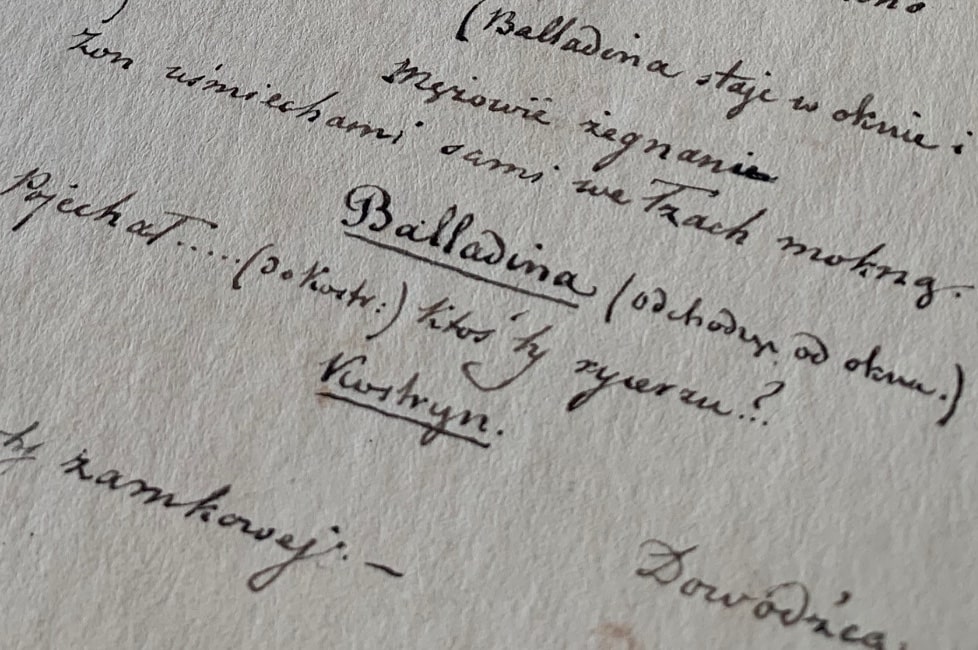 (Balladina staje w oknie i
Mężowie żegnanie
żon uśmiechami sami we łzach mokną.
Balladina (odchodząc od okna.)
Pojechał..... (do Kostr:) Ktoś ty rycerzu...?
Kostryn.
zamkowej. –
Dowódzca